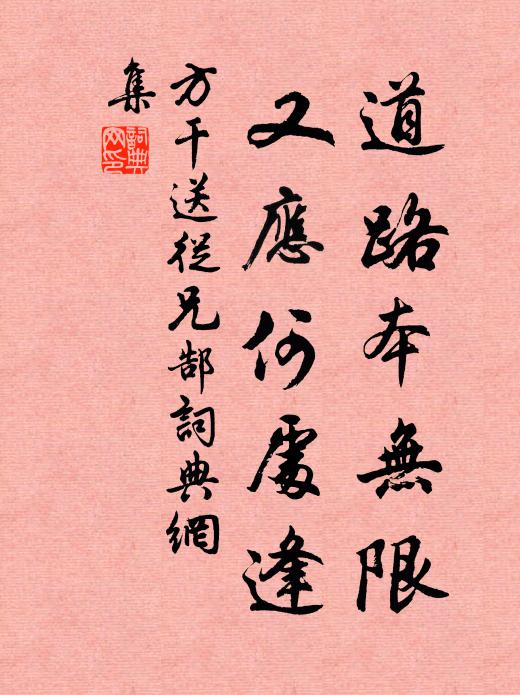 道路本無限
又應何處逢
方干送從兄郜詞典網
集
詞典
网印